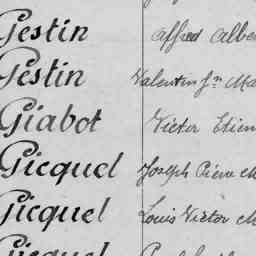 Pestin Alfred Albe
Pestin Valentin Jn Ma
Piabot Victor Etien
Picquel Joseph Pierre M
Picquel Louis Victor M
Picquel